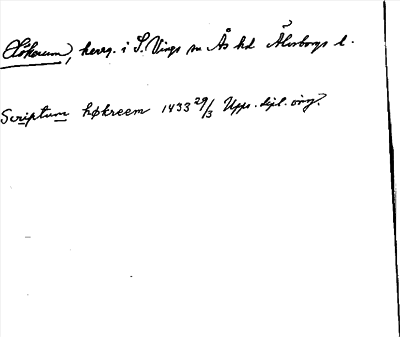 Hökerum, herrg. i S. Vings sn Ås hd Älvsborgs l.
Scriptum høkreem 1433 29/3 Upps. dipl. orig.